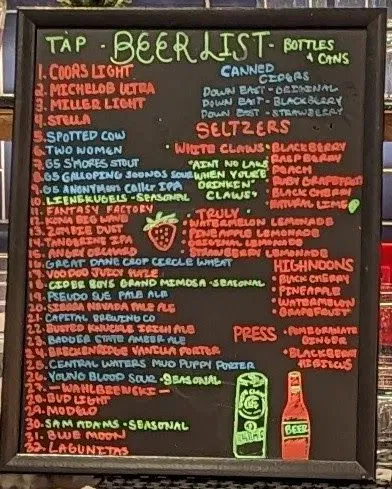 TAP - BEER LIST - BOTTLES & CANS
1. COORS LIGHT
2. MICHELOB ULTRA
3. MILLER LIGHT
4. STELLA
5. SPOTTED COW
6. TWO WOMEN
7. G5 S'MORES STOUT
8. G5 GALLOPING GOONDS SOUR
9. G5 ANONYMOUS CALLER IPA
10. LIENEKUGELS - SEASONAL
11. FANTASY FACTORY
13. ZOMBIE DUST
14. TANGERINE IPA
16. GREAT DANE CROP CIRCLE WHEAT
17. VOODOO JUICY HAZE
18. CIDER BOYS GRAND MIMOSA - SEASONAL
19. PSEUDO SUE PALE ALE
20. SIERRA NEVADA PALE ALE
21. CAPITAL BREWING CO
22. BUSTED KNUCKLE IRISH ALE
23. BADGER STATE AMBER ALE
24. BRECKENRIDGE VANILLA PORTER
25. CENTRAL WATERS MUD PUPPY PORTER
26. YOUNG BLOOD SOUR - SEASONAL
27. - WAHLBEEWSKI -
28. BUD LIGHT
29. MODELO
30. SAM ADAMS - SEASONAL
31. BLUE MOON
32. LAGUNITAS
CANNED
CIDERS
DOWN EAST - ORIGINAL
DOWN EAST - BLACKBERRY
DOWN EAST - STRAWBERRY
SELTZERS
• WHITE CLAWS • BLACKBERRY
"AIN'T NO LAWS
WHEN YOU'RE
DRINKEN'
CLAWS"
RASPBERRY
PEACH
RUBY GRAPEFRUIT
BLACK CHERRY
NATURAL LIME
• TRULY •
WATERMELON LEMONADE
PINEAPPLE LEMONADE
ORIGINAL LEMONADE
STRAWBERRY LEMONADE
HIGHNOONS
• BLACK CHERRY
• PINEAPPLE
• WATERMELON
• GRAPEFRUIT
PRESS • POMEGRANATE
GINGER
• BLACKBERRY
HIBISCUS
BEER